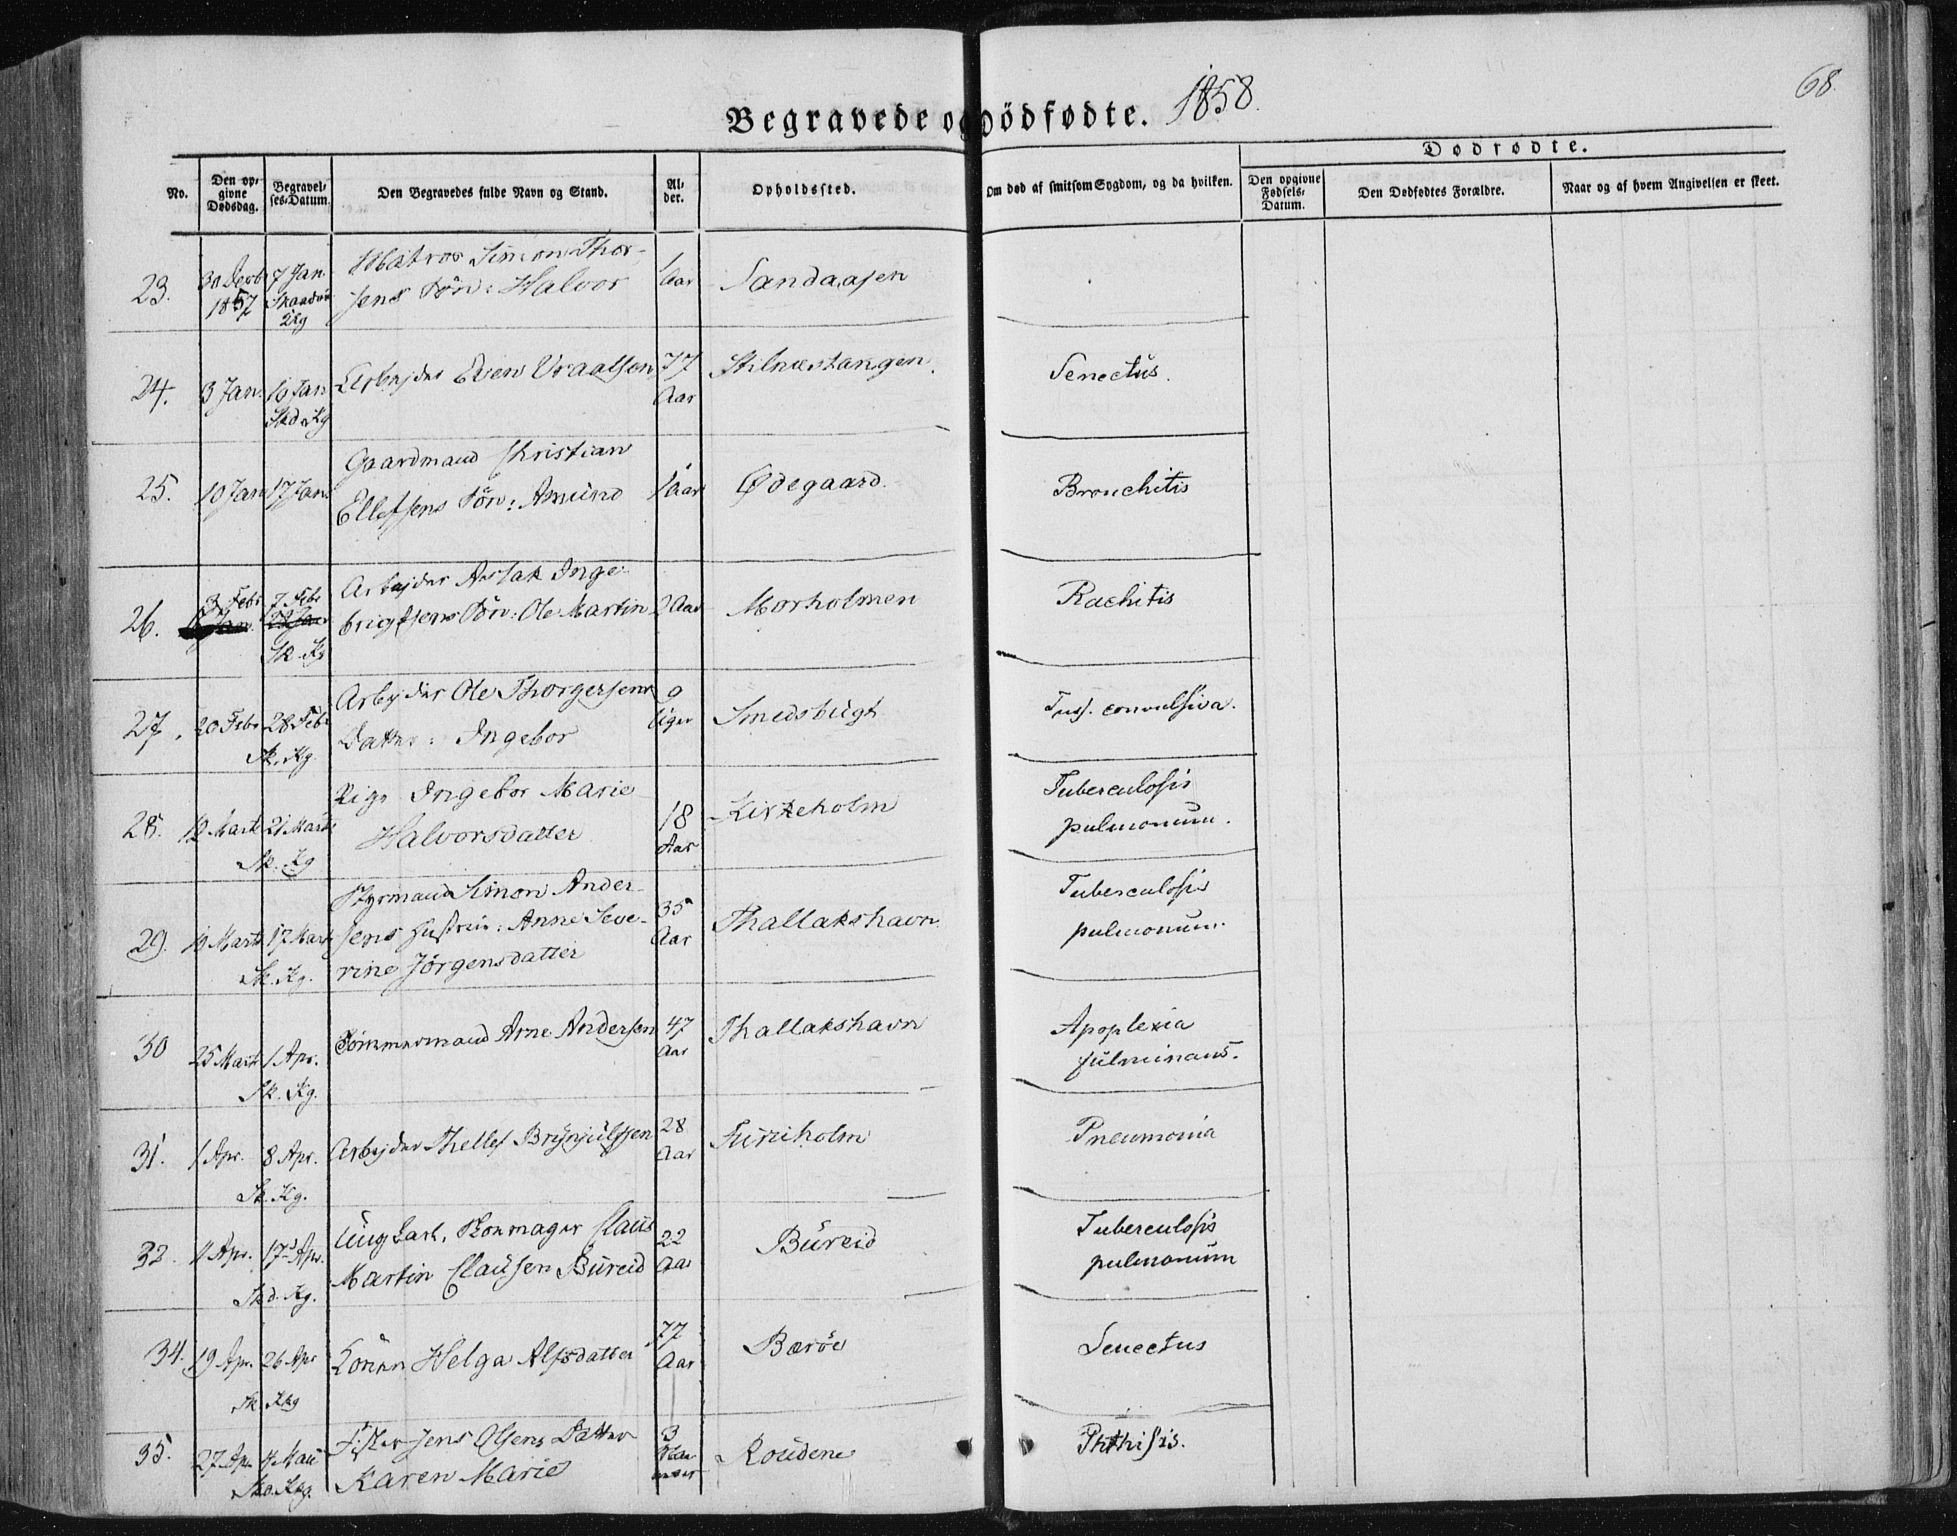 Begravede og Dödfødte. 1858.
68.
No.
Den opgivne Dødsdag.
Begravelses-Datum.
Den Begravedes fulde Navn og Stand.
Alder.
Opholdssted.
Om død af smitsom Sygdom, og da hvilken.
Dødfødte.
Den opgivne Fødsels-Datum.
Den Dødfødtes Forældre.
Naar og af hvem Angivelsen er skeet.
23. 30 Decb 1857 7 Jan. Matros Simon Thorsens Sön: Halvor 1 Aar Sandaasen
24. 3 Jan. 10 Jan Skd. Kg Arbejder Even Vraalsen 77 Aar Stilnæstangen. Senectus.
25. 10 Jan 17 Jan. Gaardmand Christian Ellefsens Sön: Amund 1 Aar Ødegaard. Bronchitis
26. 3 Febr 7 Febr Sk. Kg Arbejder Aslak Ingebrigtsens Sön: Ole Martin 2 Aar Morholmen Rachitis
27. 20 Febr 28 Febr Sk. Kg. Arbejder Ole Thorgersens Datter: Ingebor 9 Uger Smedsbugt Tuss. convulsiva.
28. 12 Marts 21 Marts Sk. Kg Pige Ingebor Marie Halvorsdatter 18 Aar Kirkeholm Tuberculosis pulmonum.
29. 10 Marts 17 Marts Sk. Kg. Styrmand Simon Andersens Hustru: Anne Severine Jörgensdatter 35 Aar Thallakshavn Tuberculosis pulmonum.
30 25 Marts 1 Apr. Sk. Kg. Tömmermand Arne Andersen 47 Aar Thallakshavn Apoplexia fulminans.
31. 1 Apr. 8 Apr. Sk. Kg. Arbejder Thellef Brynjulfsen 28 Aar Furuholm Pneumonia
32. 11 Apr. 17 Apr. Skd. Kg. Ungkarl, Skomager Claus Martin Clausen Bureid 22 Aar Bureid Tuberculosis pulmonum
34. 19 Apr. 26 Apr Sk. Kg Konen Helga Alfsdatter 77 Aar Barøe Senectus
35. 27 Apr 4 Mai Sk. Kg. Fisker Jens Olsens Datter Karen Marie 3 Maaneder Roudene Phthisis.